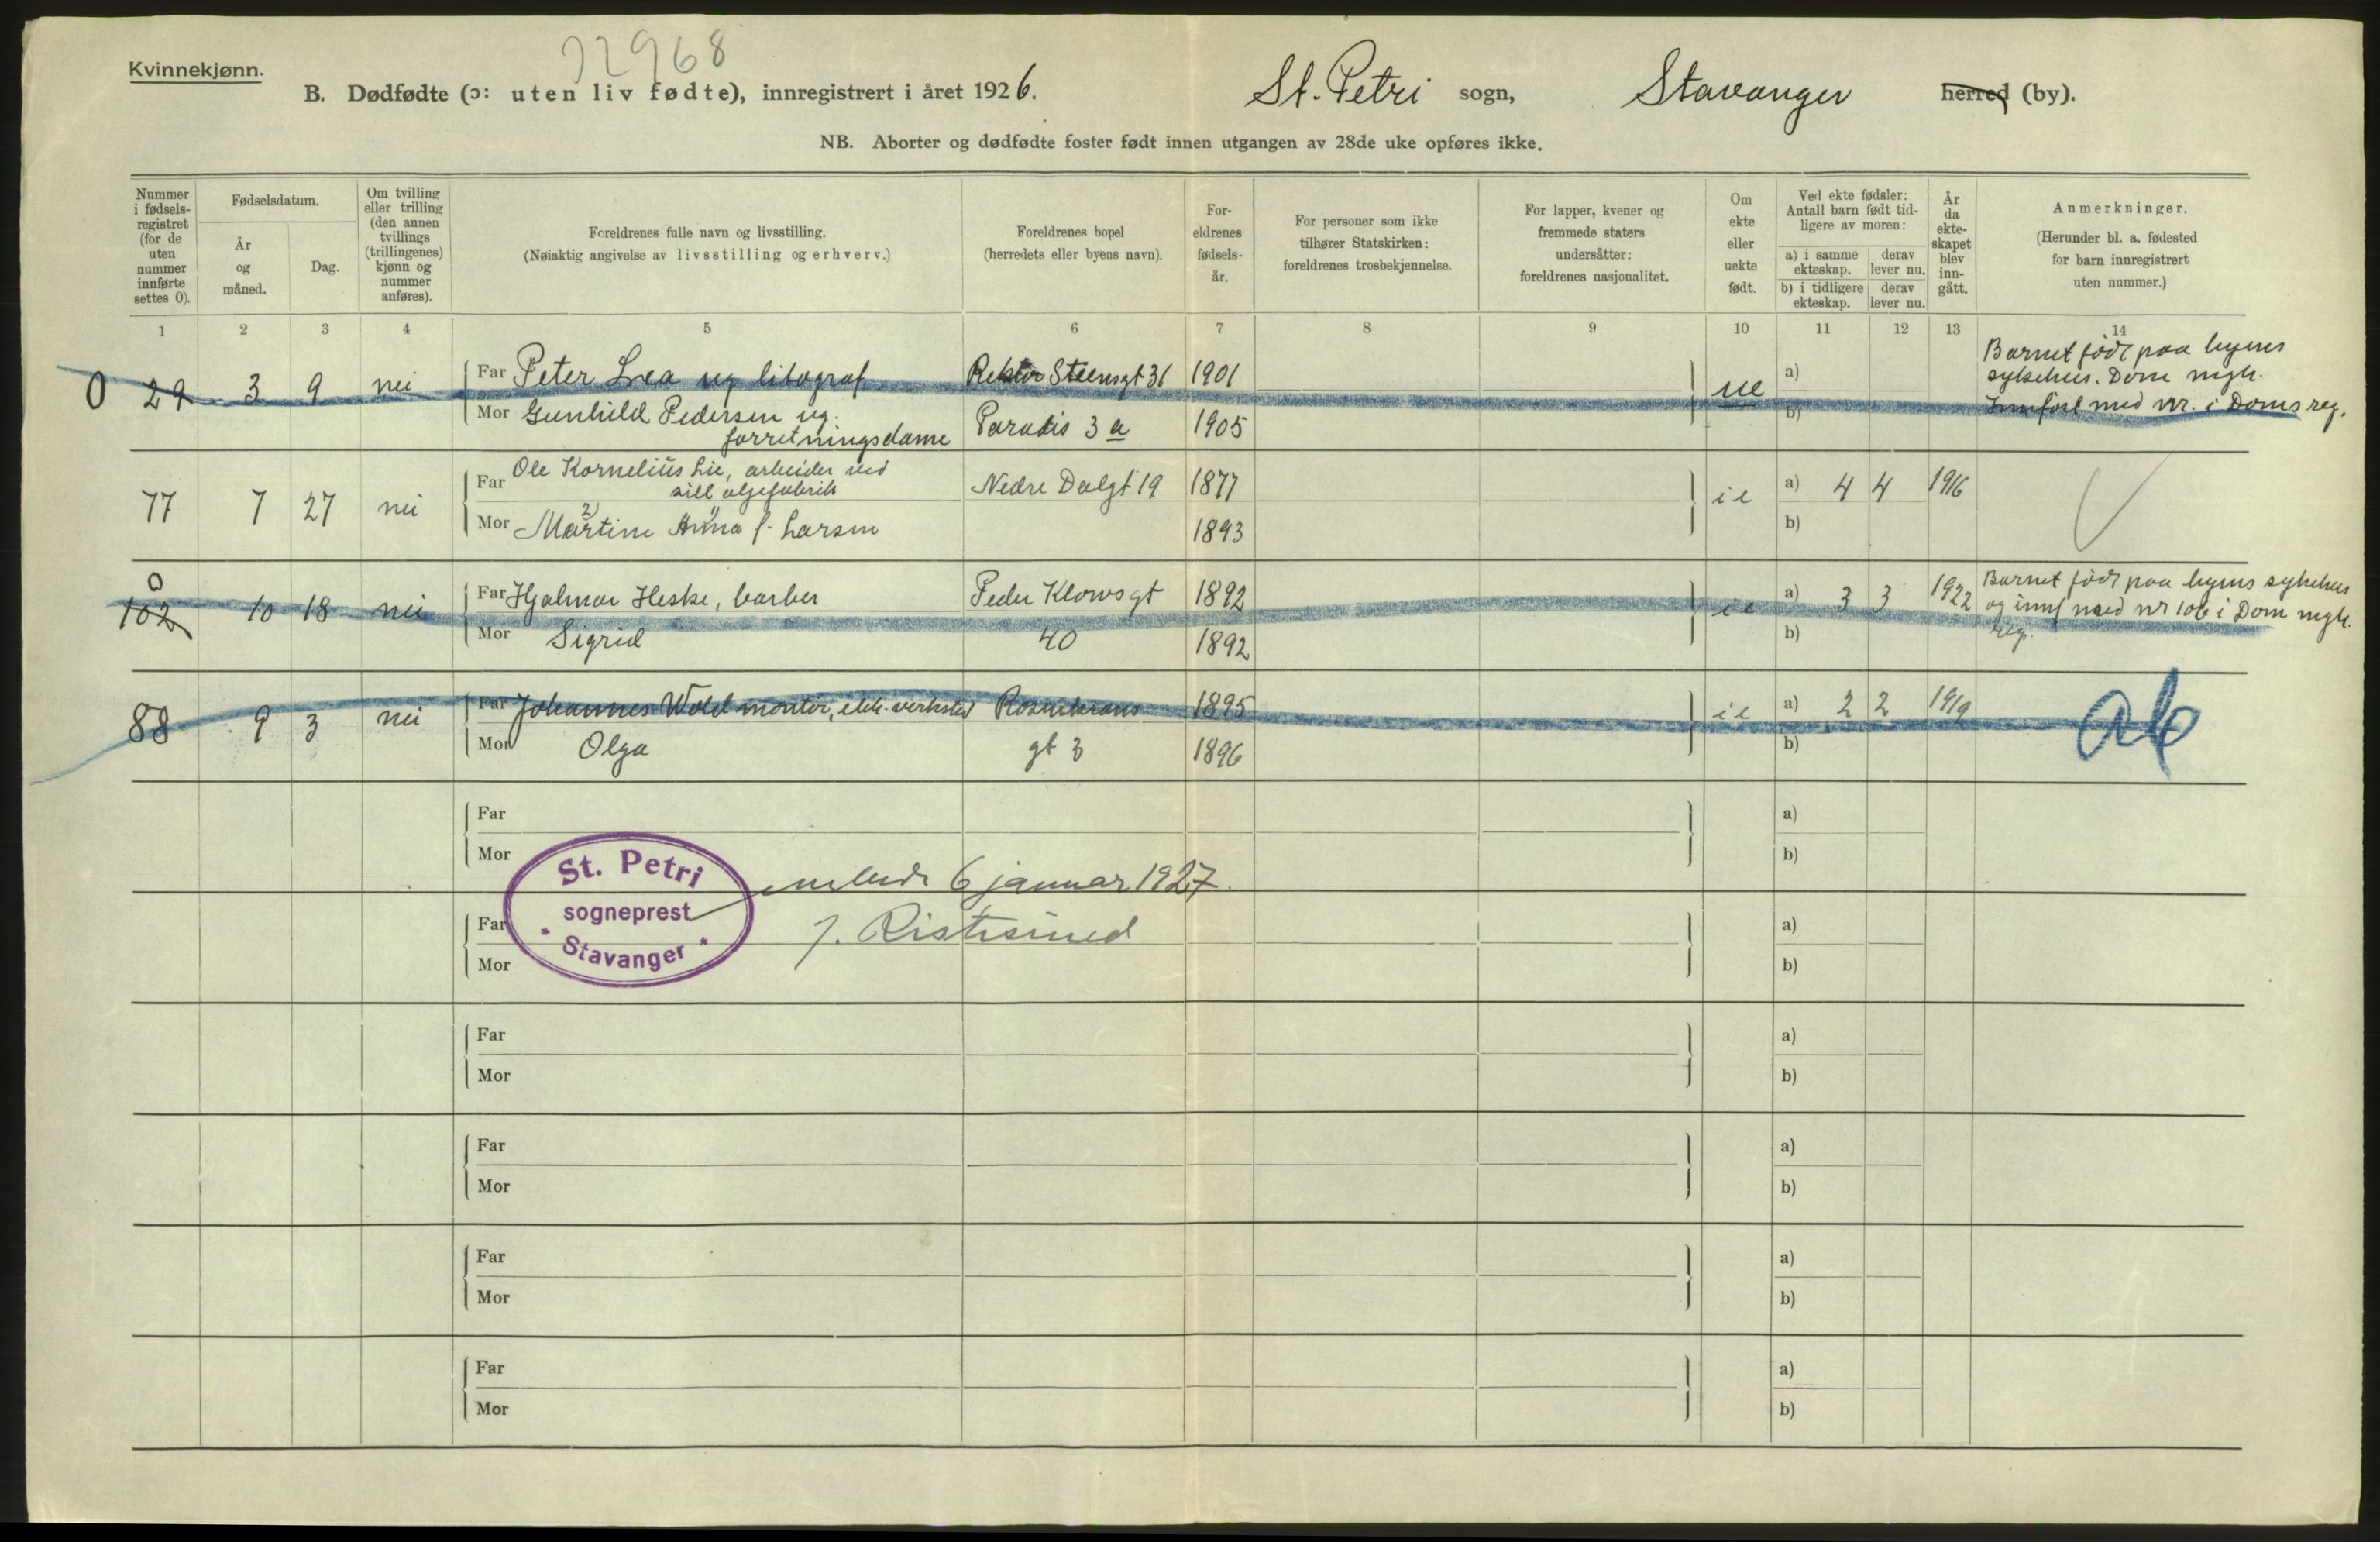 Kvinnekjønn.
B. Dødfødte (ɔ: uten liv fødte), innregistrert i året 1926. St. Petri sogn, Stavanger herred (by).
NB. Aborter og dødfødte foster født innen utgangen av 28de uke opføres ikke.
Nummer i fødsels- registret (for de uten nummer innførte settes 0).
Fødselsdatum.
År og måned.
Dag.
Om tvilling eller trilling (den annen tvillings (trillingenes) kjønn og nummer anføres).
Foreldrenes fulle navn og livsstilling.
(Nøiaktig angivelse av livsstilling og erhverv.)
Foreldrenes bopel
(herredets eller byens navn).
For- eldrenes fødsels- år.
For personer som ikke tilhører Statskirken: foreldrenes trosbekjennelse.
For lapper, kvener og fremmede staters undersåtter: foreldrenes nasjonalitet.
Om ekte eller uekte født.
Ved ekte fødsler: Antall barn født tid- ligere av moren:
a) i samme ekteskap. derav lever nu.
b) i tidligere ekteskap. derav lever nu.
År da ekte- skapet blev inn- gått.
Anmerkninger.
(Herunder bl. a. fødested for barn innregistrert uten nummer.)
1 2 3 4 5 6 7 8 9 10 11 12 13 14
0 29 3 9 nei Far Peter Lea ug litograf Rektor Steensgt 31 1901 ue a)
Mor Gunhild Pedersen ug. Paradis 3 a 1905 b)
forretningsdame
Barnet født paa byens
sykehus. Dom mgh.
Innført med nr. i Doms reg.
77 7 27 nei Far Ole Kornelius Lie, arbeider ved Nedre Dalgt 19 1877 ie a) 4 4 1916
sill oljefabrik
Mor Martine Anna f. Larsen 1893 b)
0
102 10 18 nei Far Hjalmar Heske, barber Peder Klowsgt 1892 ie a) 3 3 1922
Mor Sigrid 40 1892 b)
Barnet født paa byens sykehus
og innf med nr 106 i Dom mgh.
reg.
88 9 3 nei Far Johannes Wold montør, elek. verksted Rosenkrans 1895 ie a) 2 2 1919
Mor Olga gt 3 1896 b)
Far a)
Mor b)
St. Petri
sogneprest
* Stavanger *
embede 6 januar 1927.
Far a)
Mor b)
Far a)
Mor b)
Far a)
Mor b)
Far a)
Mor b)
Far a)
Mor b)